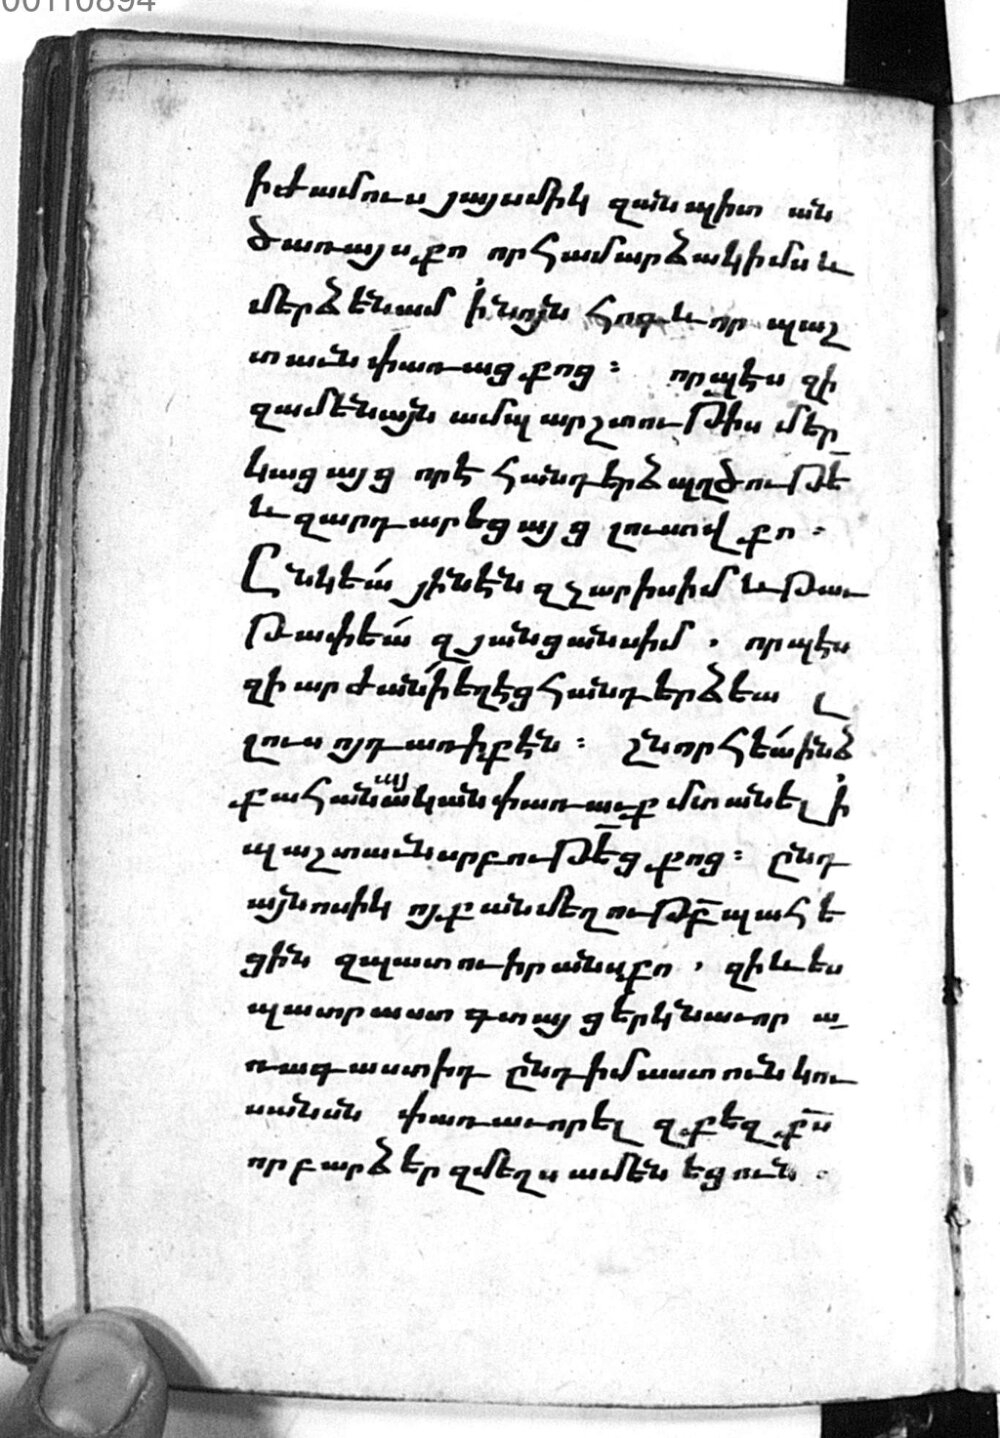 00110894
ի ժամուս յայսմիկ զանպիտան
ծառայս քո որ համարձակիմս և
մերձենամ ի նոյն հոգևոր պաշ
տաւն փառաց քոց։ որպէս զի
զամենայն ամպարշտութիս մեր
կացայց որ է հանդերձ պղծութե
և զարդարեցայց լուսով քո։
Ընկեա յինէն զչարիսիմ և թաւ
թափեա զյանցանսիմ, որպէս
զի արժանի եղէց հանդերձեա լ
լուսոյդ առի քէն։ շնորհեա ինձ
քահանայական փառաւք մտանել ի
պաշտաւն սրբութեց քոց։ ընդ
այնոսիկ ոյք անմեղութբ պահե
ցին զպատուիրանս քո, զի և ես
պատրաստ գտայց երկնաւոր ա
ռագաստիդ ընդ իմաստուն կու
սանսն փառաւորել զքեզ քս
որ բարձեր զմեղս ամենեցուն։